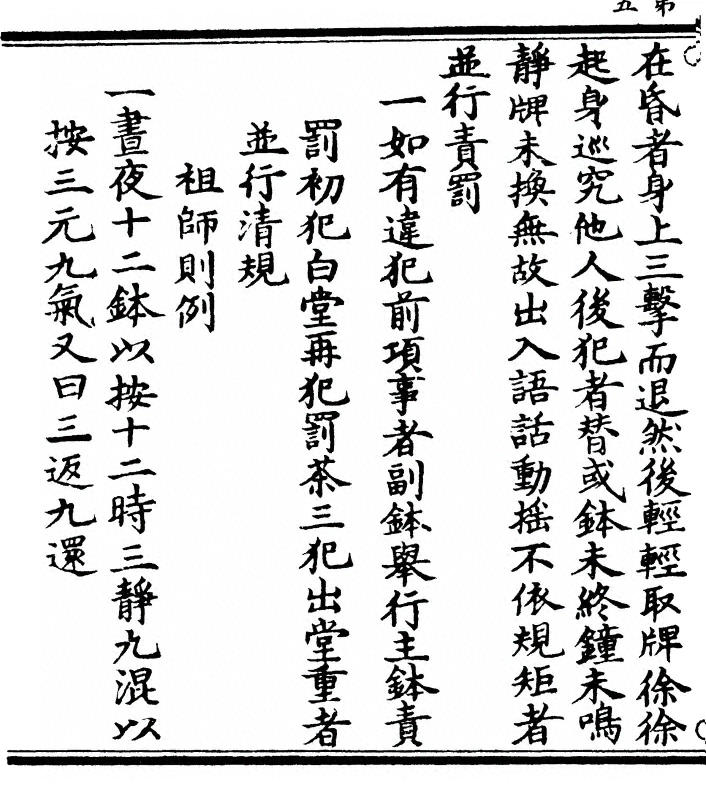 第五
在昏者身上三擊而退然後輕輕取牌徐徐
起身巡究他人後犯者替或鉢未終鐘未鳴
靜牌未換無故出入語話動搖不依規矩者
並行責罰
一如有違犯前項事者副鉢舉行主鉢責
罰初犯白堂再犯罰茶三犯出堂重者
並行清規
祖師則例
一晝夜十二鉢以按十二時三靜九混以
按三元九氣又曰三返九還